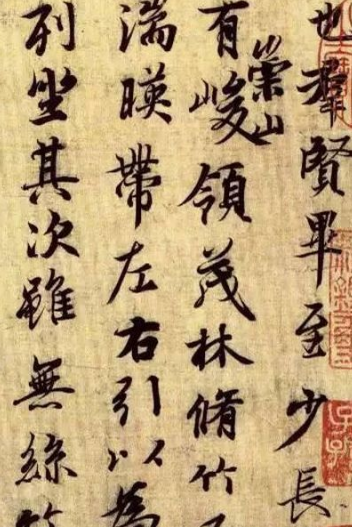 也羣賢畢至少長
有崇山峻領茂林脩竹
湍暎帶左右引以為
列坐其次雖無絲竹